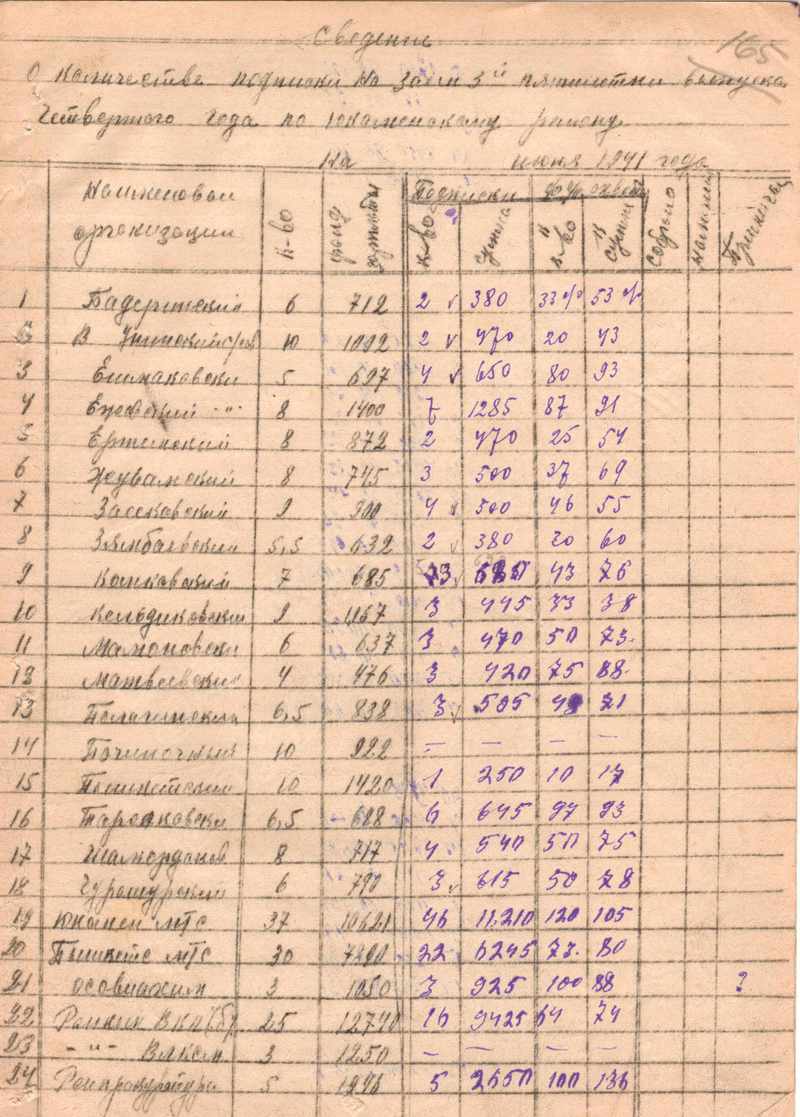 165
Сведение
О количестве подписки на заем 3й пятилетки выпуска
четвертого года по Юкаменскому району
На июня 1941 года
Наименован организации к-во фонд зарплаты Подписки % % охвата собрано наличн Примечан
к-во сумма к к-во к сумме
1 Бадерински 6 712 2 380 33% 53%
2 В Унинский с/сов 10 1092 2 470 20 43
3 Ешмаковски 5 697 4 650 80 93
4 Ежевский -"- 8 1400 7 1285 87 91
5 Ертемский 8 872 2 470 25 54
6 Жувамский 8 745 3 500 37 69
7 Засековский 9 900 4 500 46 55
8 Зямбаевский 5,5 632 2 380 20 60
9 Канковский 7 685 43 76
10 Кельдыковски 9 1167 3 445 33 38
11 Мамоновски 6 637 3 470 50 73
12 Матвеевский 4 476 3 420 75 88
13 Палагинский 6,5 838 3 595 71
14 Починочный 10 922 — — — —
15 Пышкетский 10 1420 1 250 10 17
16 Тарсаковски 6,5 688 6 645 97 93
17 Шамарданов 8 717 4 540 50 75
18 Чурашурский 6 790 3 615 50 78
19 Юкамен МТС 37 10621 46 11,210 120 105
20 Пышкетс МТС 30 7290 22 6245 73 80
21 Осовиахим 3 1050 3 925 100 88 ?
22 Райком ВКП(б) 25 12740 16 9425 64 74
23 -"- ВЛКСМ 3 1250 — — — —
24 Райпрокуратура 5 5 2650 100 136